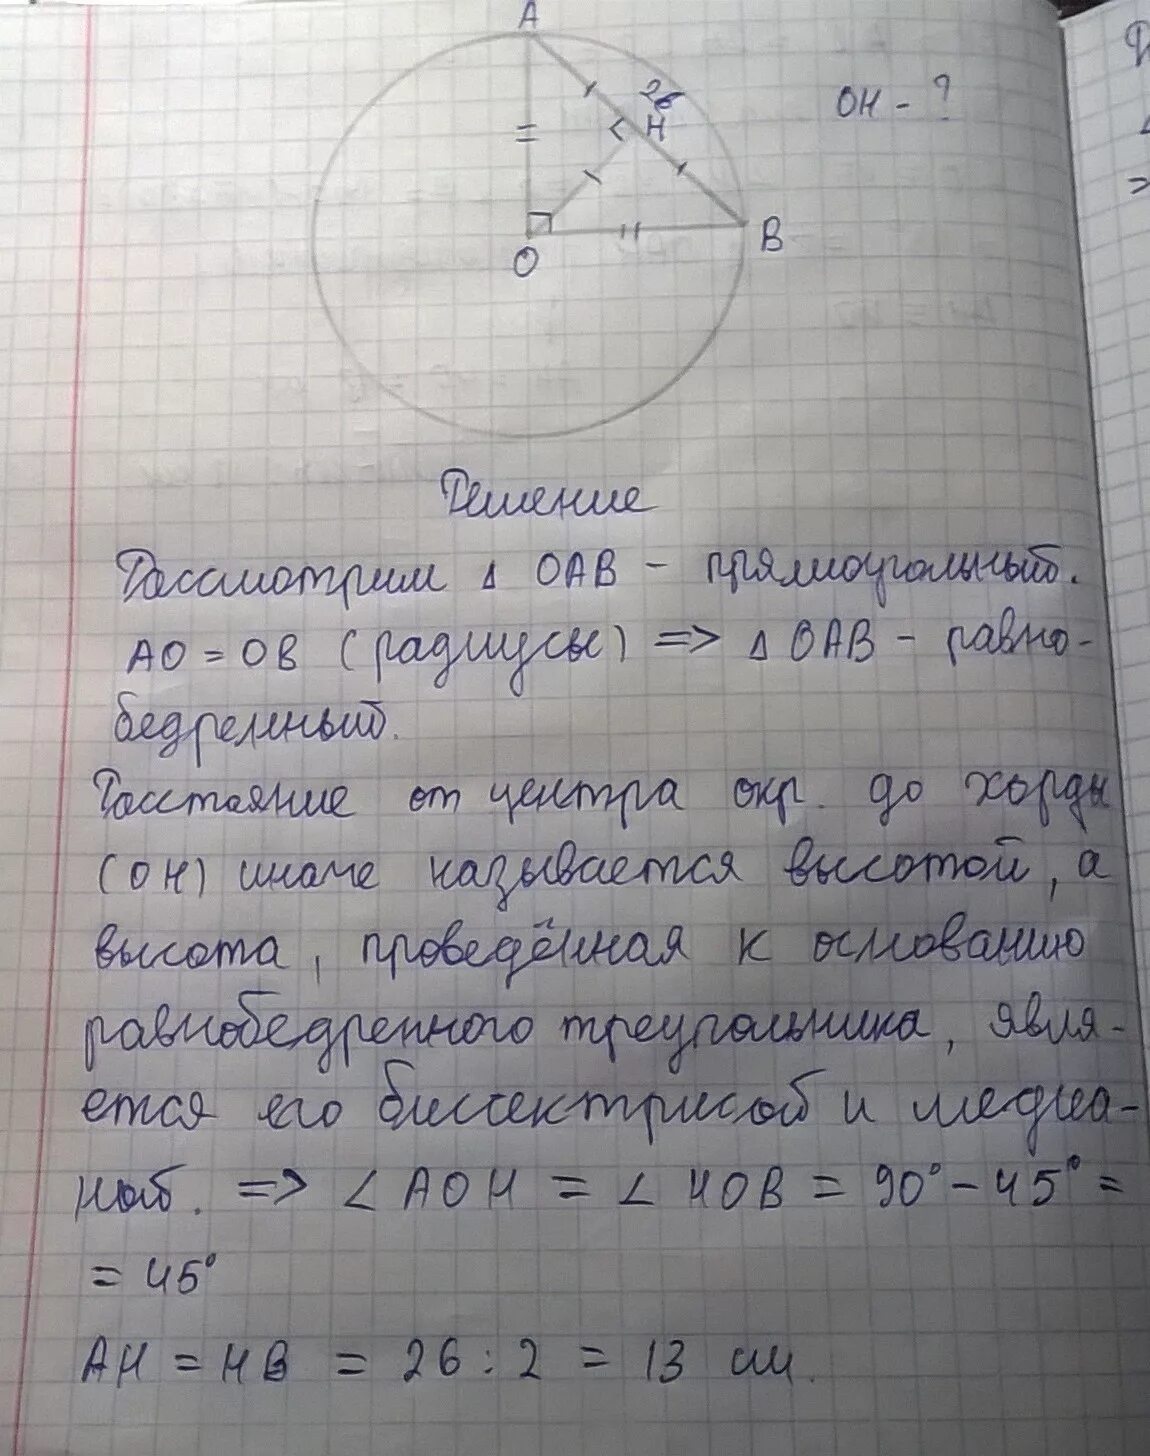 A
26
H
OH - ?
O
B
Решение
Рассмотрим △ OAB – прямоугольный.
AO = OB (радиусы) => △ OAB – равно-
бедренный.
Расстояние от центра окр. до хорды
(OH) иначе называется высотой, а
высота, проведённая к основанию
равнобедренного треугольника, явля-
ется его биссектрисой и медиа-
ной. => ∠ AOH = ∠ HOB = 90° – 45° =
= 45°
AH = HB = 26 : 2 = 13 см.